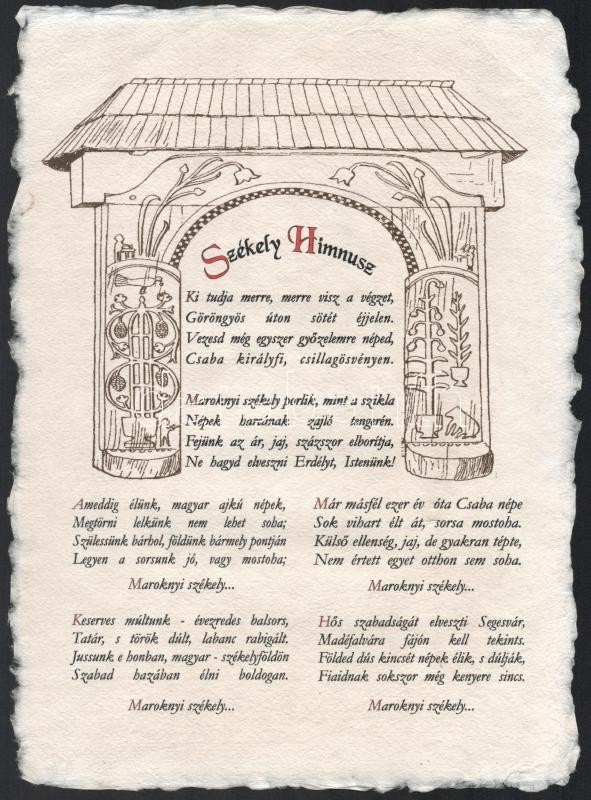 Székely Himnusz
Ki tudja merre, merre visz a végzet,
Göröngyös úton sötét éjjelen.
Vezesd még egyszer győzelemre néped,
Csaba királyfi, csillagösvényen.
Maroknyi székely porlik, mint a szikla
Népek harcának zajló tengerén.
Fejünk az ár, jaj, százszor elborítja,
Ne hagyd elveszni Erdélyt, Istenünk!
Ameddig élünk, magyar ajkú népek,
Megtörni lelkünk nem lehet soha;
Szülessünk bárhol, földünk bármely pontján
Legyen a sorsunk jó, vagy mostoha;
Maroknyi székely...
Keserves múltunk - évezredes balsors,
Tatár, s török dúlt, labanc rabigált.
Jussunk e honban, magyar - székelyföldön
Szabad hazában élni boldogan.
Maroknyi székely...
Már másfél ezer év óta Csaba népe
Sok vihart élt át, sorsa mostoha.
Külső ellenség, jaj, de gyakran tépte,
Nem értett egyet otthon sem soha.
Maroknyi székely...
Hős szabadságát elveszti Segesvár,
Madéfalvára fájón kell tekints.
Földed dús kincsét népek élik, s dúlják,
Fiaidnak sokszor még kenyere sincs.
Maroknyi székely...